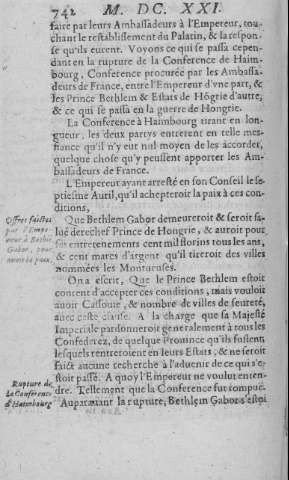 742 M. DC. XXI.
faire par leurs Ambassadeurs à l'Empereur, tou-
chant le restablissement du Palatin, & la respon-
se qu'ils eurent. Voyons ce qui se passa cepen-
dant en la rupture de la Conference de Haim-
bourg, Conference procurée par les Ambassa-
deurs de France, entre l'Empereur d'vne part, &
les Prince Bethlem & Estats de Hõgrie d'autre,
& ce qui se passa en la guerre de Hongrie.
La Conference à Haimbourg tirant en lon-
gueur, les deux partys entrerent en telle mes-
fiance qu'il n'y eut nul moyen de les accorder,
quelque chose qu'y peussent apporter les Am-
bassadeurs de France.
L'Empereur ayant arresté en son Conseil le se-
ptiesme Auril, qu'il achepteroit la paix à ces con-
ditions,
Offres faictes
par l'Empe-
reur à Bethlē
Gabor, pour
auoir la paix.
Que Bethlem Gabor demeureroit & seroit sa-
lué derechef Prince de Hongrie, & auroit pour
ses entretenements cent mil florins tous les ans,
& cent marcs d'argent qu'il tireroit des villes
nommées les Montueuses.
On a escrit, Que le Prince Bethlem estoit
content d'accepter ces conditions, mais vouloit
auoir Cassouie, & nombre de villes de seureté,
auec ceste clause. A la charge que sa Majesté
Imperiale pardonneroit generalement à tous les
Confederez, de quelque Prouince qu'ils fussent,
lesquels rentreroient en leurs Estats, & ne seroit
faict aucune recherche à l'aduenir de ce qui s'e-
stoit passé. A quoy l'Empereur ne voulut enten-
dre. Tellement que la Conference fut rompuë.
Rupture de
la Conference
d'Haimbourg
Auparauant la rupture, Bethlem Gabor s'estoi